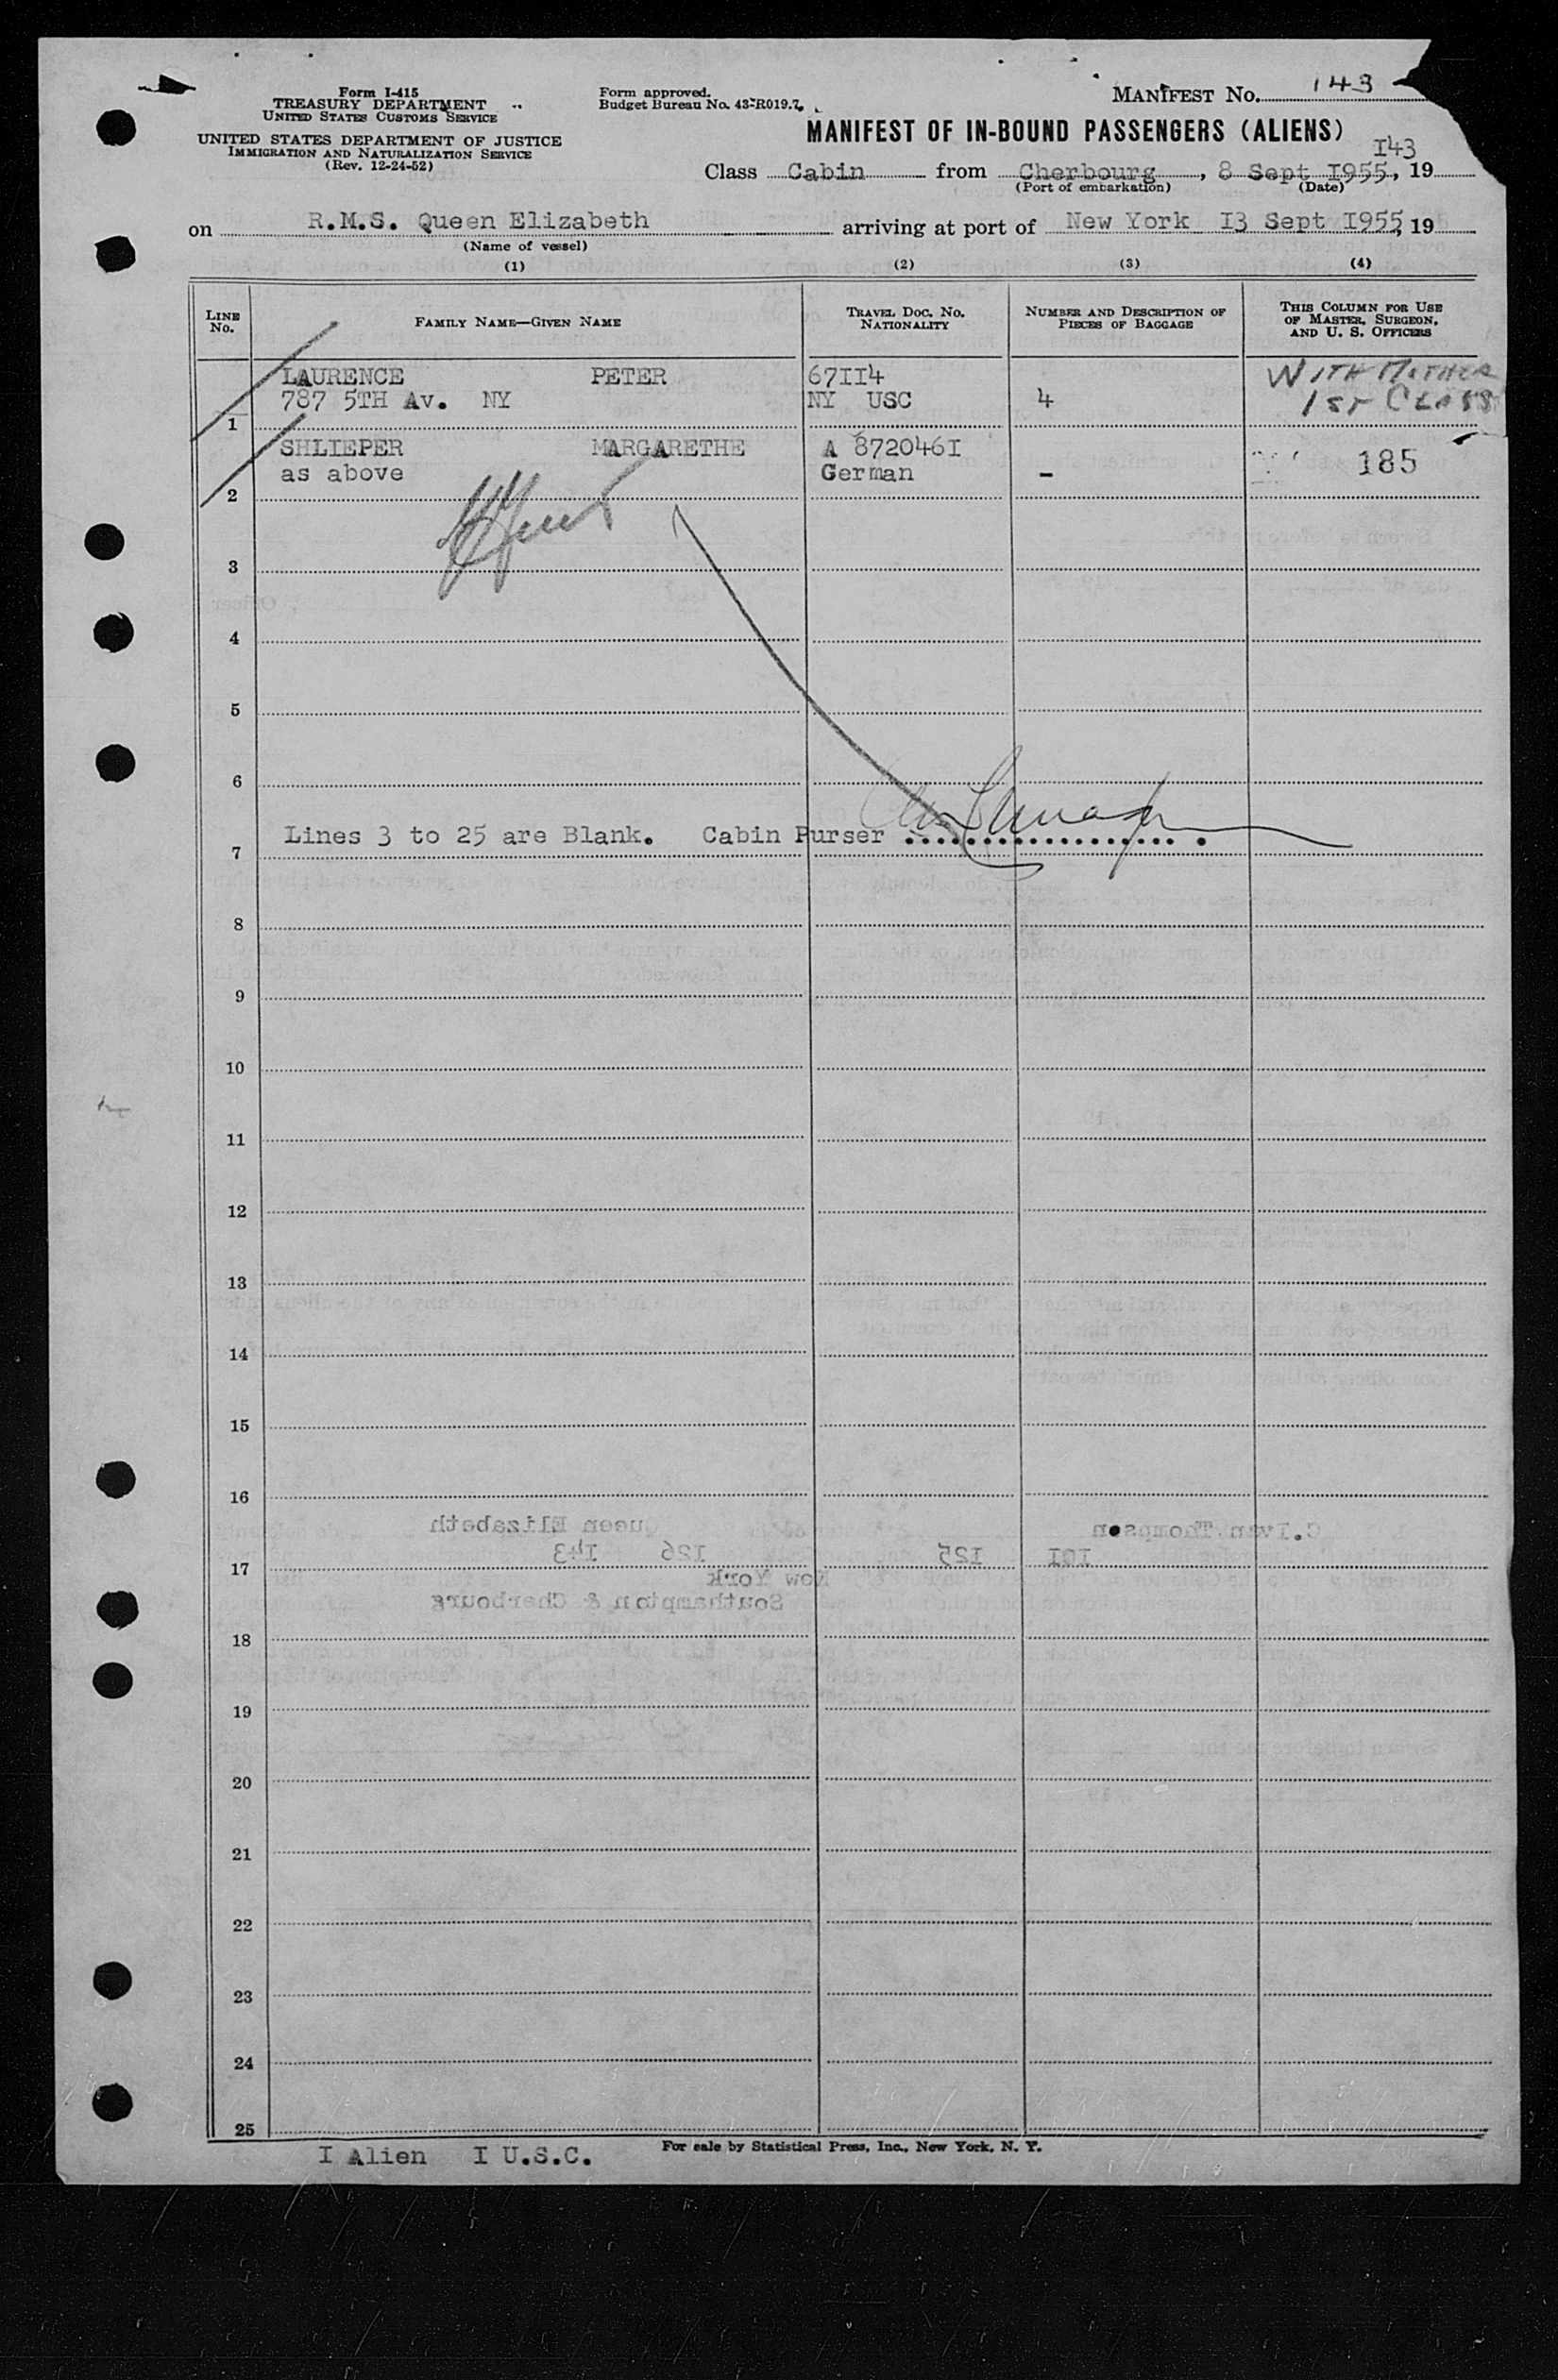 Form I-415
TREASURY DEPARTMENT
UNITED STATES CUSTOMS SERVICE
UNITED STATES DEPARTMENT OF JUSTICE
IMMIGRATION AND NATURALIZATION SERVICE
(Rev. 12-24-52)
Form approved.
Budget Bureau No. 43-R019.7.
MANIFEST NO. 143
MANIFEST OF IN-BOUND PASSENGERS (ALIENS)
I43
Class Cabin from Cherbourg, 8 Sept I955, 19
(Port of embarkation) (Date)
on R.M.S. Queen Elizabeth arriving at port of New York I3 Sept I955, 19
(Name of vessel)
(1) (2) (3) (4)
LINE NO. FAMILY NAME—GIVEN NAME TRAVEL DOC. NO. NATIONALITY NUMBER AND DESCRIPTION OF PIECES OF BAGGAGE THIS COLUMN FOR USE OF MASTER, SURGEON, AND U. S. OFFICERS
LAURENCE PETER 67II4 WITH MOTHER
787 5TH Av. NY NY USC 4 1ST CLASS
1
SHLIEPER MARGARETHE A 872046I
as above German - 185
2
3
4
5
6
Lines 3 to 25 are Blank. Cabin Purser
7
8
9
10
11
12
13
14
15
16
Queen Elizabeth C.Ivan Thompson
17 I43 I26 I25 I0I
New York
Southampton & Cherbourg
18
19
20
21
22
23
24
25
I Alien I U.S.C. For sale by Statistical Press, Inc., New York, N. Y.